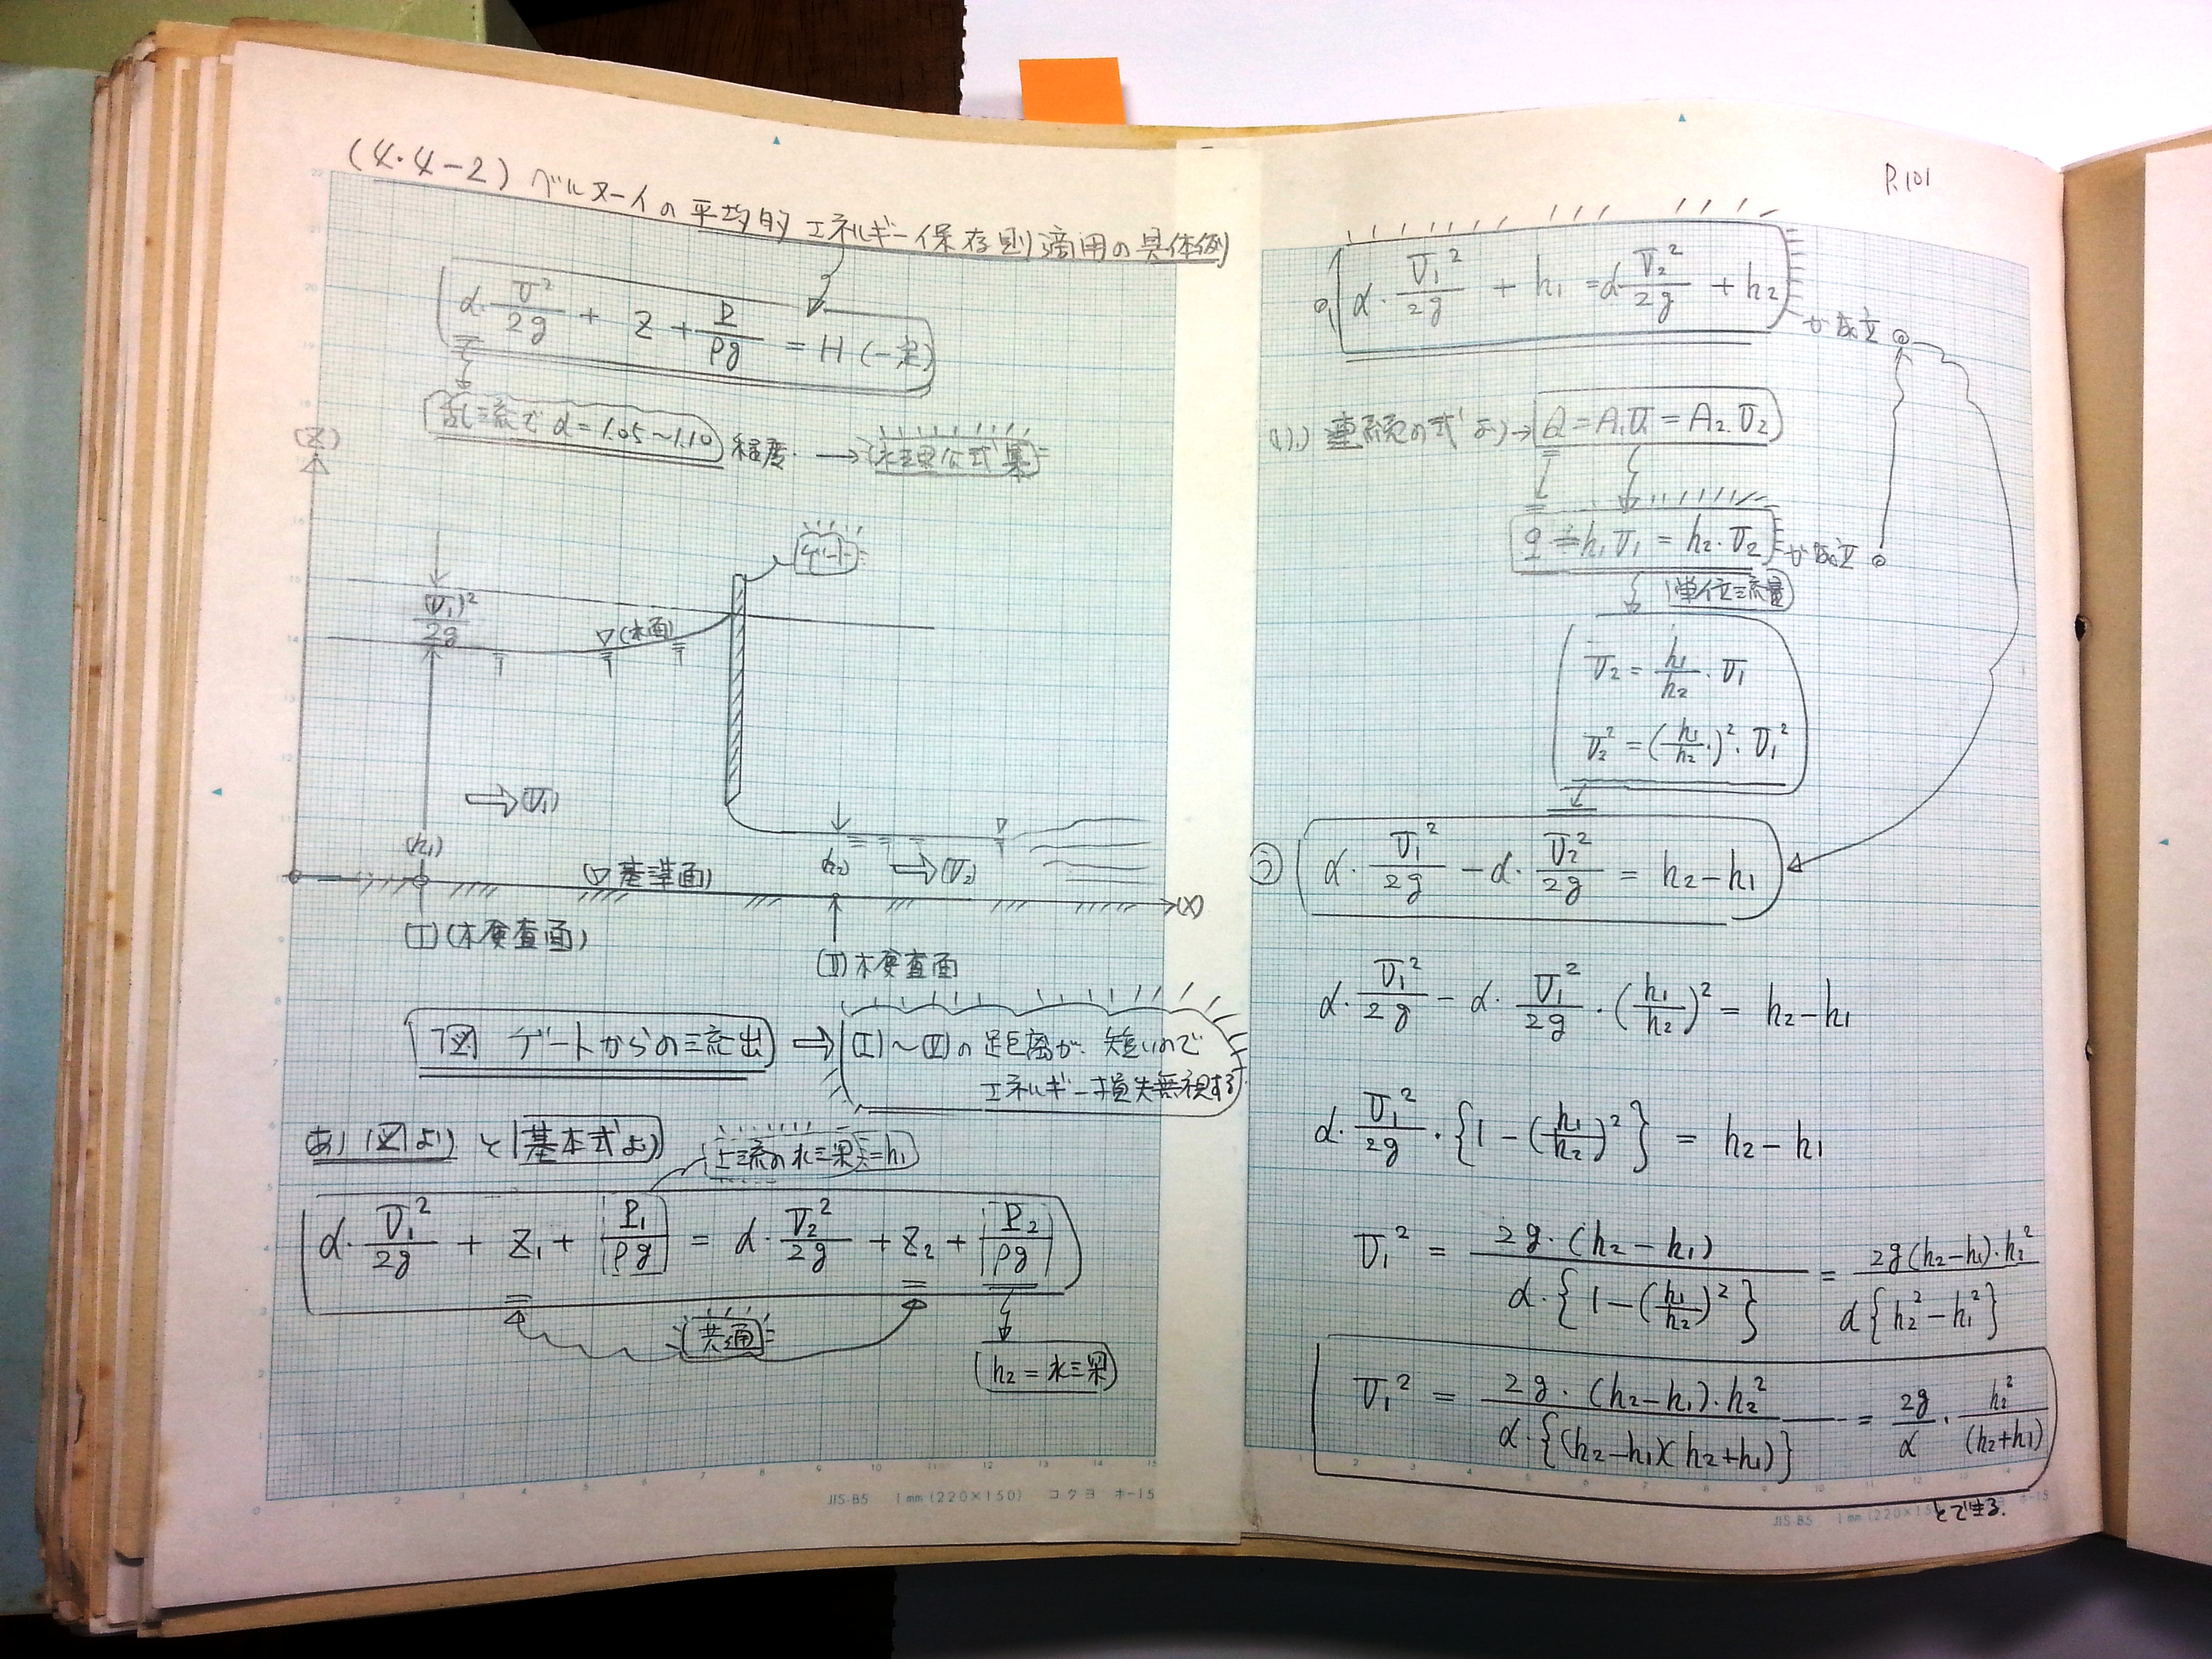 (4・4-2) ベルヌーイの平均的エネルギー保存則適用の具体例
α・v²/2g + Z + P/ρg = H (一定)
乱流で α=1.05～1.10 程度. → 水理公式集
(Z)
ゲート
(v₁)²/2g
▽(水面)
⇒(v₁)
(h₁)
▽基準面
(h₂)
⇒(v₂)
(X)
(I)(本検査面)
(II)本検査面
1図 ゲートからの流出 ⇒ (I)～(II)の距離が、短いので
エネルギー損失無視する
あ) 図より と 基本式より
上流の水深=h₁
α・v₁²/2g + Z₁ + P₁/ρg = α・v₂²/2g + Z₂ + P₂/ρg
共通
h₂=水深
JIS-B5 1mm(220×150) コクヨ ホ-15
P.101
α・v₁²/2g + h₁ = α v₂²/2g + h₂
が成立
い) 連続の式より→ Q = A₁v₁ = A₂・v₂
q = h₁v₁ = h₂・v₂ が成立
単位流量
v₂ = h₁/h₂・v₁
v₂² = (h₁/h₂)²・v₁²
う) α・v₁²/2g - α・v₂²/2g = h₂-h₁
α・v₁²/2g - α・v₁²/2g・(h₁/h₂)² = h₂-h₁
α・v₁²/2g・{1-(h₁/h₂)²} = h₂-h₁
v₁² = 2g・(h₂-h₁)/α・{1-(h₁/h₂)²} = 2g(h₂-h₁)・h₂²/α{h₂²-h₁²}
v₁² = 2g・(h₂-h₁)・h₂²/α・{(h₂-h₁)(h₂+h₁)} = 2g/α・h₂²/(h₂+h₁)
とできる.
JIS-B5 1mm(220×15 ホ-15